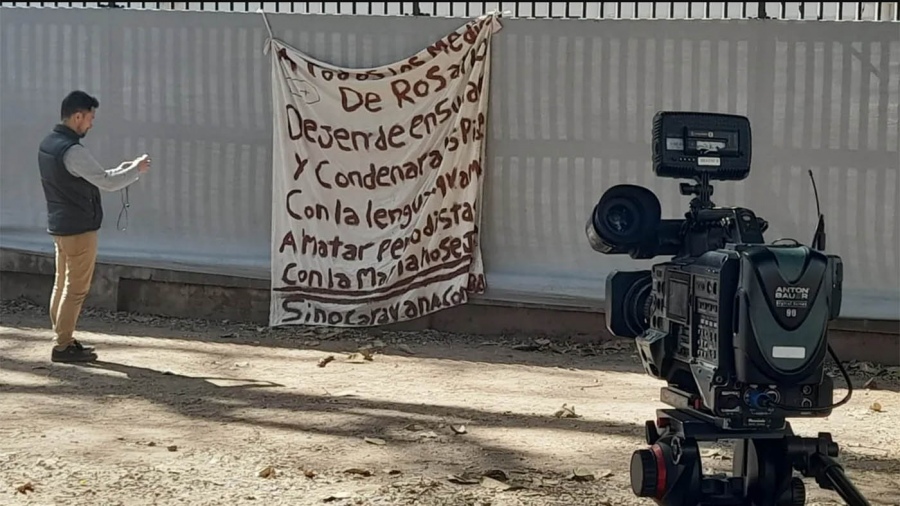 A Todos los Medi
De Rosario
Dejen de ensu
Y Condenar a
Con la lengua
A Matar Periodista
Con la Mafia no se
Sino caravana
ANTON
BAUER